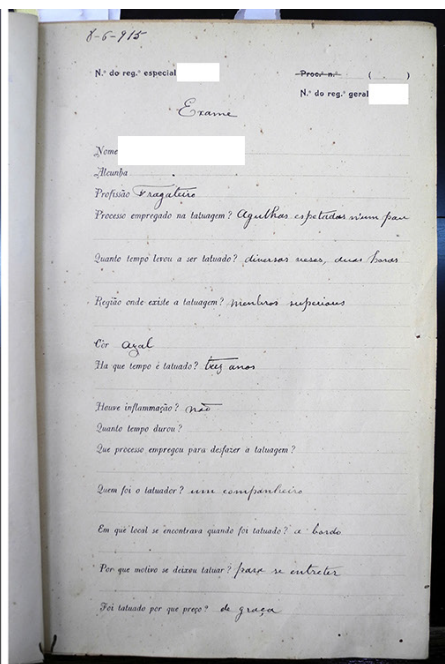 8-6-915
N.º do reg.º especial
Proc.º n.º ( )
N.º do reg.º geral
Exame
Nome
Alcunha
Profissão Fragateiro
Processo empregado na tatuagem? Agulhas espetadas n'um pau
Quanto tempo levou a ser tatuado? diversas vezes, duas horas
Região onde existe a tatuagem? membros superiores
Côr azal
Ha que tempo é tatuado? trez anos
Houve inflammação? não
Quanto tempo durou?
Que processo empregou para desfazer a tatuagem?
Quem foi o tatuador? um companheiro
Em que local se encontrava quando foi tatuado? a bordo
Por que motivo se deixou tatuar? para se entreter
Foi tatuado por que preço? de graça